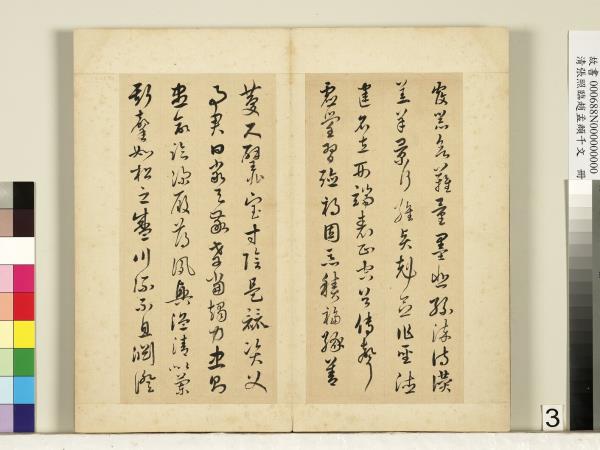 覆器欲難量墨悲絲染詩讚
羔羊景行維賢剋念作聖德
建名立形端表正空谷傳聲
虛堂習聽禍因惡積福緣善
慶尺璧非寶寸陰是競資父
事君曰嚴與敬孝當竭力忠則
盡命臨深履薄夙興溫清似蘭
斯馨如松之盛川流不息淵澄
故書 000688N000000000
清張照臨趙孟頫千文 冊
3